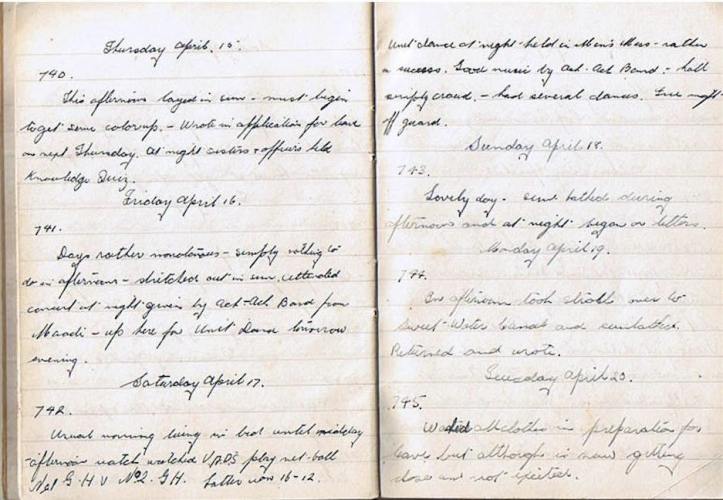 Thursday April. 15.
740.
This afternoon layed in sun - must begin
to get some color up. - Wrote in application for leave
on next Thursday. At night sisters & officers
Knowledge Quiz.
Friday April 16.
741.
Days rather monotonous - simply nothing to
do in afternoons - stretched out in sun. Attended
concert at night given by Ack-Ack. Band from
Maadi - up here for Unit Dance tomorrow
evening.
Saturday April 17.
742.
Usual morning lying in bed until midday
- afternoon watch watched V.A.D.S play net-ball
No1 G.H V No2. G.H. Latter won 16-12.
Unit dance at night - held in Men's Mess - rather
a success. Good music by Ack-Ack Band. - hall
simply crowd. - had several dances. Free night
off guard.
Sunday April 18.
743.
Lovely day - sun bathed during
afternoon and at night began on letters.
Monday April 19.
744.
In afternoon took stroll over to
Sweet-Water Canal and sunbathed.
Returned and wrote.
Tuesday April 20.
745.
all clothes in preparation for
leave but although is now getting
close am not excited.